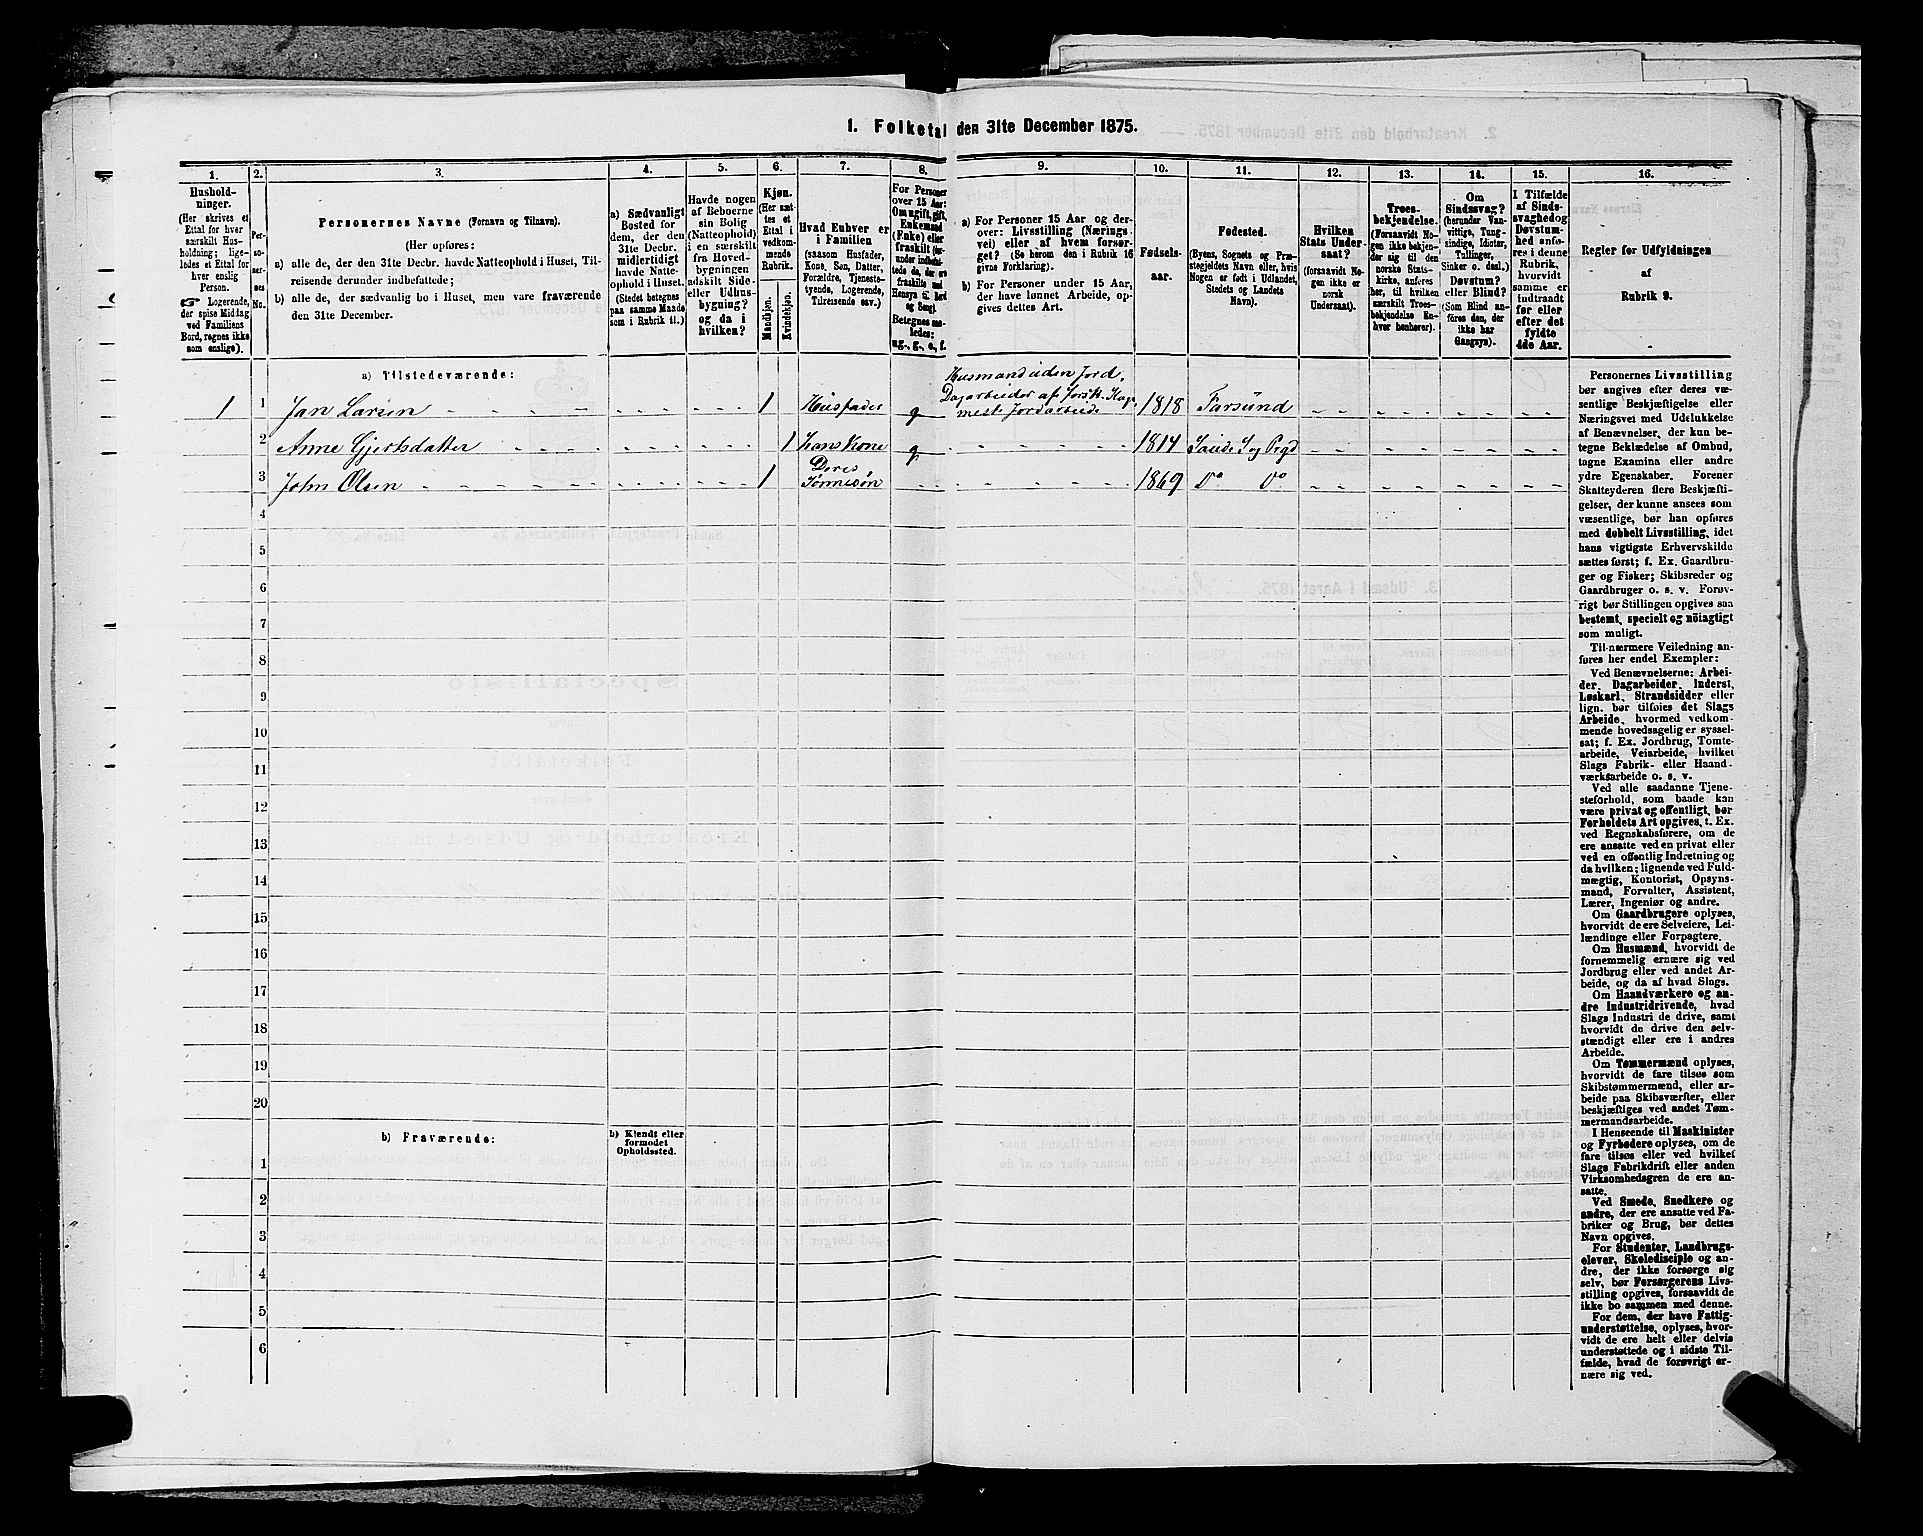 1. Folketal den 31te December 1875.
1. 2. 3. 4. 5. 6. 7. 8. 9. 10. 11. 12. 13. 14. 15. 16.
Hushold-
ninger.
(Her skrives et
Ettal for hver
særskilt Hus-
holdning; lige-
ledes et Ettal for
hver enslig
Person.
☞ Logerende,
der spise Middag
ved Familiens
Bord, regnes ikke
som enslige).
Per-
so-
ner-
nes
No.
Personernes Navne (Fornavn og Tilnavn).
(Her opføres:
a) alle de, der den 31te Decbr. havde Natteophold i Huset, Til-
reisende derunder indbefattede;
b) alle de, der sædvanlig bo i Huset, men vare fraværende
den 31te December.
a) Sædvanligt
Bosted for
dem, der den
31te Decbr.
midlertidigt
havde Natte-
ophold i Huset.
(Stedet betegnes
paa samme Maade
som i Rubrik 11.)
Havde nogen
af Beboerne
sin Bolig
(Natteophold)
i en særskilt
fra Hoved-
bygningen
adskilt Side-
eller Udhus-
bygning?
og da i
hvilken?
Kjøn.
(Her sæt-
tes et
Ettal i
vedkom-
mende
Rubrik.
Mandkjøn.
Kvindekjøn.
Hvad Enhver er
i Familien
(saasom Husfader,
Kone, Søn, Datter,
Forældre, Tjeneste-
tyende, Logerende,
Tilreisende osv.)
For Personer
over 15 Aar:
Om ugift, gift,
Enkemand
(Enke) eller
fraskilt
Betegnes saa-
ledes:
ug., g., e., f.
a) For Personer 15 Aar og der-
over: Livsstilling (Nærings-
vei) eller af hvem forsør-
get? (Se herom den i Rubrik 16
givne Forklaring).
b) For Personer under 15 Aar,
der have lønnet Arbeide, op-
gives dettes Art.
Fødsels-
aar.
Fødested.
(Byens, Sognets og Præ-
stegjeldets Navn eller, hvis
Nogen er født i Udlandet,
Stedets og Landets
Navn).
Hvilken
Stats Under-
saat?
(forsaavidt No-
gen ikke er
norsk
Undersaat).
Troes-
bekjendelse.
(Forsaavidt No-
gen ikke bekjen-
der sig til den
norske Stats-
kirke, anføres
her, til hvilken
særskilt Troes-
bekjendelse En-
hver henhører).
Om
Sindssvag?
(herunder Van-
vittige, Tung-
sindige, Idioter,
Tullinger,
Sinker o. desl.)
Døvstum?
eller Blind?
(Som Blind an-
føres den, der
ikke har
Gangsyn).
I Tilfælde
af Sinds-
svaghed og
Døvstum-
hed anfø-
res i denne
Rubrik,
hvorvidt
samme er
indtraadt
før eller
efter det
fyldte
4de Aar.
Regler for Udfyldningen
af
Rubrik 9.
a) Tilstedeværende:
1 1 Jan Larsen 1 Husfader g Husmand uden Jord, Dagarbeider 1818 Farsund
2 Anne Gjertsdatter 1 Hans Kone g 1814 Saude S og Prgd
3 John Olsen 1 Deres Sønnesøn 1869 Do Do
4
5
6
7
8
9
10
11
12
13
14
15
16
17
18
19
20
b) Fraværende:
b) Kjendt eller
formodet
Opholdssted.
1
2
3
4
5
6
Personernes Livsstilling
bør angives efter deres væ-
sentlige Beskjæftigelse eller
Næringsvei med Udelukkelse
af Benævnelser, der kun be-
tegne Beklædelse af Ombud,
tagne Examina eller andre
ydre Egenskaber. Forener
Skatteyderen flere Beskjæfti-
gelser, der kunne ansees som
væsentlige, bør han opføres
med dobbelt Livsstilling, idet
hans vigtigste Erhvervskilde
sættes først; f. Ex. Gaardbru-
ger og Fisker; Skibsreder og
Gaardbruger o. s. v. Forøv-
rigt bør Stillingen opgives saa
bestemt, specielt og nöiagtigt
som muligt.
Til nærmere Veiledning an-
føres her endel Exempler:
Ved Benævnelserne: Arbei-
der, Dagarbeider, Inderst,
Løskarl, Strandsidder eller
lign. bør tilføies det Slags
Arbeide, hvormed vedkom-
mende hovedsagelig er syssel-
sat; f. Ex. Jordbrug, Tomte-
arbeide, Veiarbeide, hvilket
Slags Fabrik- eller Haand-
værksarbeide o. s. v.
Ved alle saadanne Tjene-
steforhold, som baade kan
være privat og offentligt, bør
Forholdets Art opgives, t. Ex.
ved Regnskabsførere, om de
ere ansatte ved en privat eller
ved en offentlig Indretning og
da hvilken; lignende ved Fuld-
mægtig, Kontorist, Opsyns-
mand, Forvalter, Assistent,
Lærer, Ingeniør og andre.
Om Gaardbrugere oplyses,
hvorvidt de ere Selveiere, Lei-
lændinge eller Forpagtere.
Om Husmænd, hvorvidt de
fornemmelig ernære sig ved
Jordbrug eller ved andet Ar-
beide, og da af hvad Slags.
Om Haandværkere og an-
dre Industridrivende, hvad
Slags Industri de drive, samt
hvorvidt de drive den selv-
stændigt eller ere i andres
Arbeide.
Om Tømmermænd oplyses,
hvorvidt de fare tilsøs som
Skibstømmermænd, eller ar-
beide paa Skibsværfter, eller
beskjæftiges ved andet Tøm-
mermandsarbeide.
I Henseende til Maskinister
og Fyrbødere oplyses, om de
fare tilsøs eller ved hvilket
Slags Fabrikdrift eller anden
Virksomhedsgren de ere an-
satte.
Ved Smede, Snedkere og
andre, der ere ansatte ved Fa-
briker og Brug, bør dettes
Navn opgives.
For Studenter, Landbrugs-
elever, Skoledisciple og an-
dre, der ikke forsørge sig
selv, bør Forsørgerens Livs-
stilling opgives, forsaavidt de
ikke bo sammen med denne.
For dem, der have Fattig-
understøttelse, oplyses, hvor-
vidt de ere helt eller delvis
understøttede og i sidste Til-
fælde, hvad de forøvrigt er-
nære sig ved.